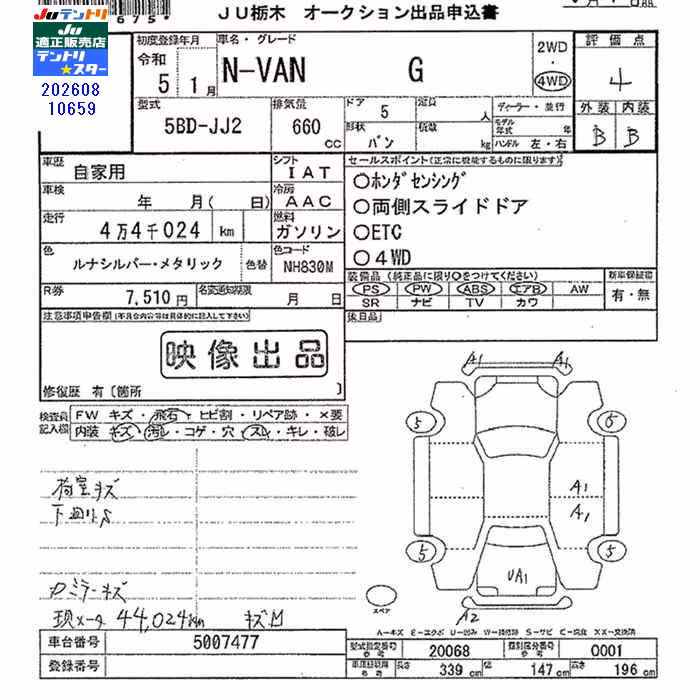 JU栃木 オークション出品申込書
675*
JUテントリ
JU
適正販売店
テントリ
★スター
202608
10659
初度登録年月
令和
5 1月
車名・グレード
N-VAN G
2WD
・
4WD
評価点
4
外装 内装
B B
型式
5BD-JJ2
排気量
660 cc
ドア 5
定員 人
形状 バン
積数 kg
ディーラー・並行
モデル年式 年
ハンドル 左・右
車歴 自家用
シフト IAT
車検 年 月( 日)
冷房 AAC
走行 4万4千024 km
燃料 ガソリン
色 ルナシルバー・メタリック
色替
色コード NH830M
R券 7,510円
名変通知期限 月 日
セールスポイント(正常に機能するものに限ります)
○ホンダセンシング
○両側スライドドア
○ETC
○4WD
装備品(純正品に限り○をつけてください)
PS PW ABS エアB AW
SR ナビ TV カワ
新車保証書
有・無
後日品
注意事項申告欄(不具合内容等は具体的に記入して下さい)
映像出品
修復歴 有〔箇所 〕
検査員記入欄
FW キズ・飛石・ヒビ割・リペア跡・×要
内装 キズ・汚れ・コゲ・穴・スレ・キレ・破レ
荷室キズ
下廻りS
ミラーキズ
現メータ 44,024km キズM
A1 A1
5 6
A1
A1
5 5
UA1
A2
スペア
A-キズ E-エクボ U-凹み W-補修跡 S-サビ C-腐食 XX-交換済
車台番号 5007477
登録番号
型式指定番号 20068
類別区分番号 0001
長さ 339 cm 幅 147 cm 高さ 196 cm